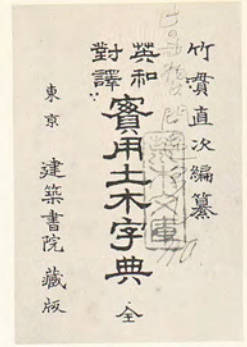 竹貫直次編纂
英和
對譯
實用土木字典 全
東京 建築書院 藏版